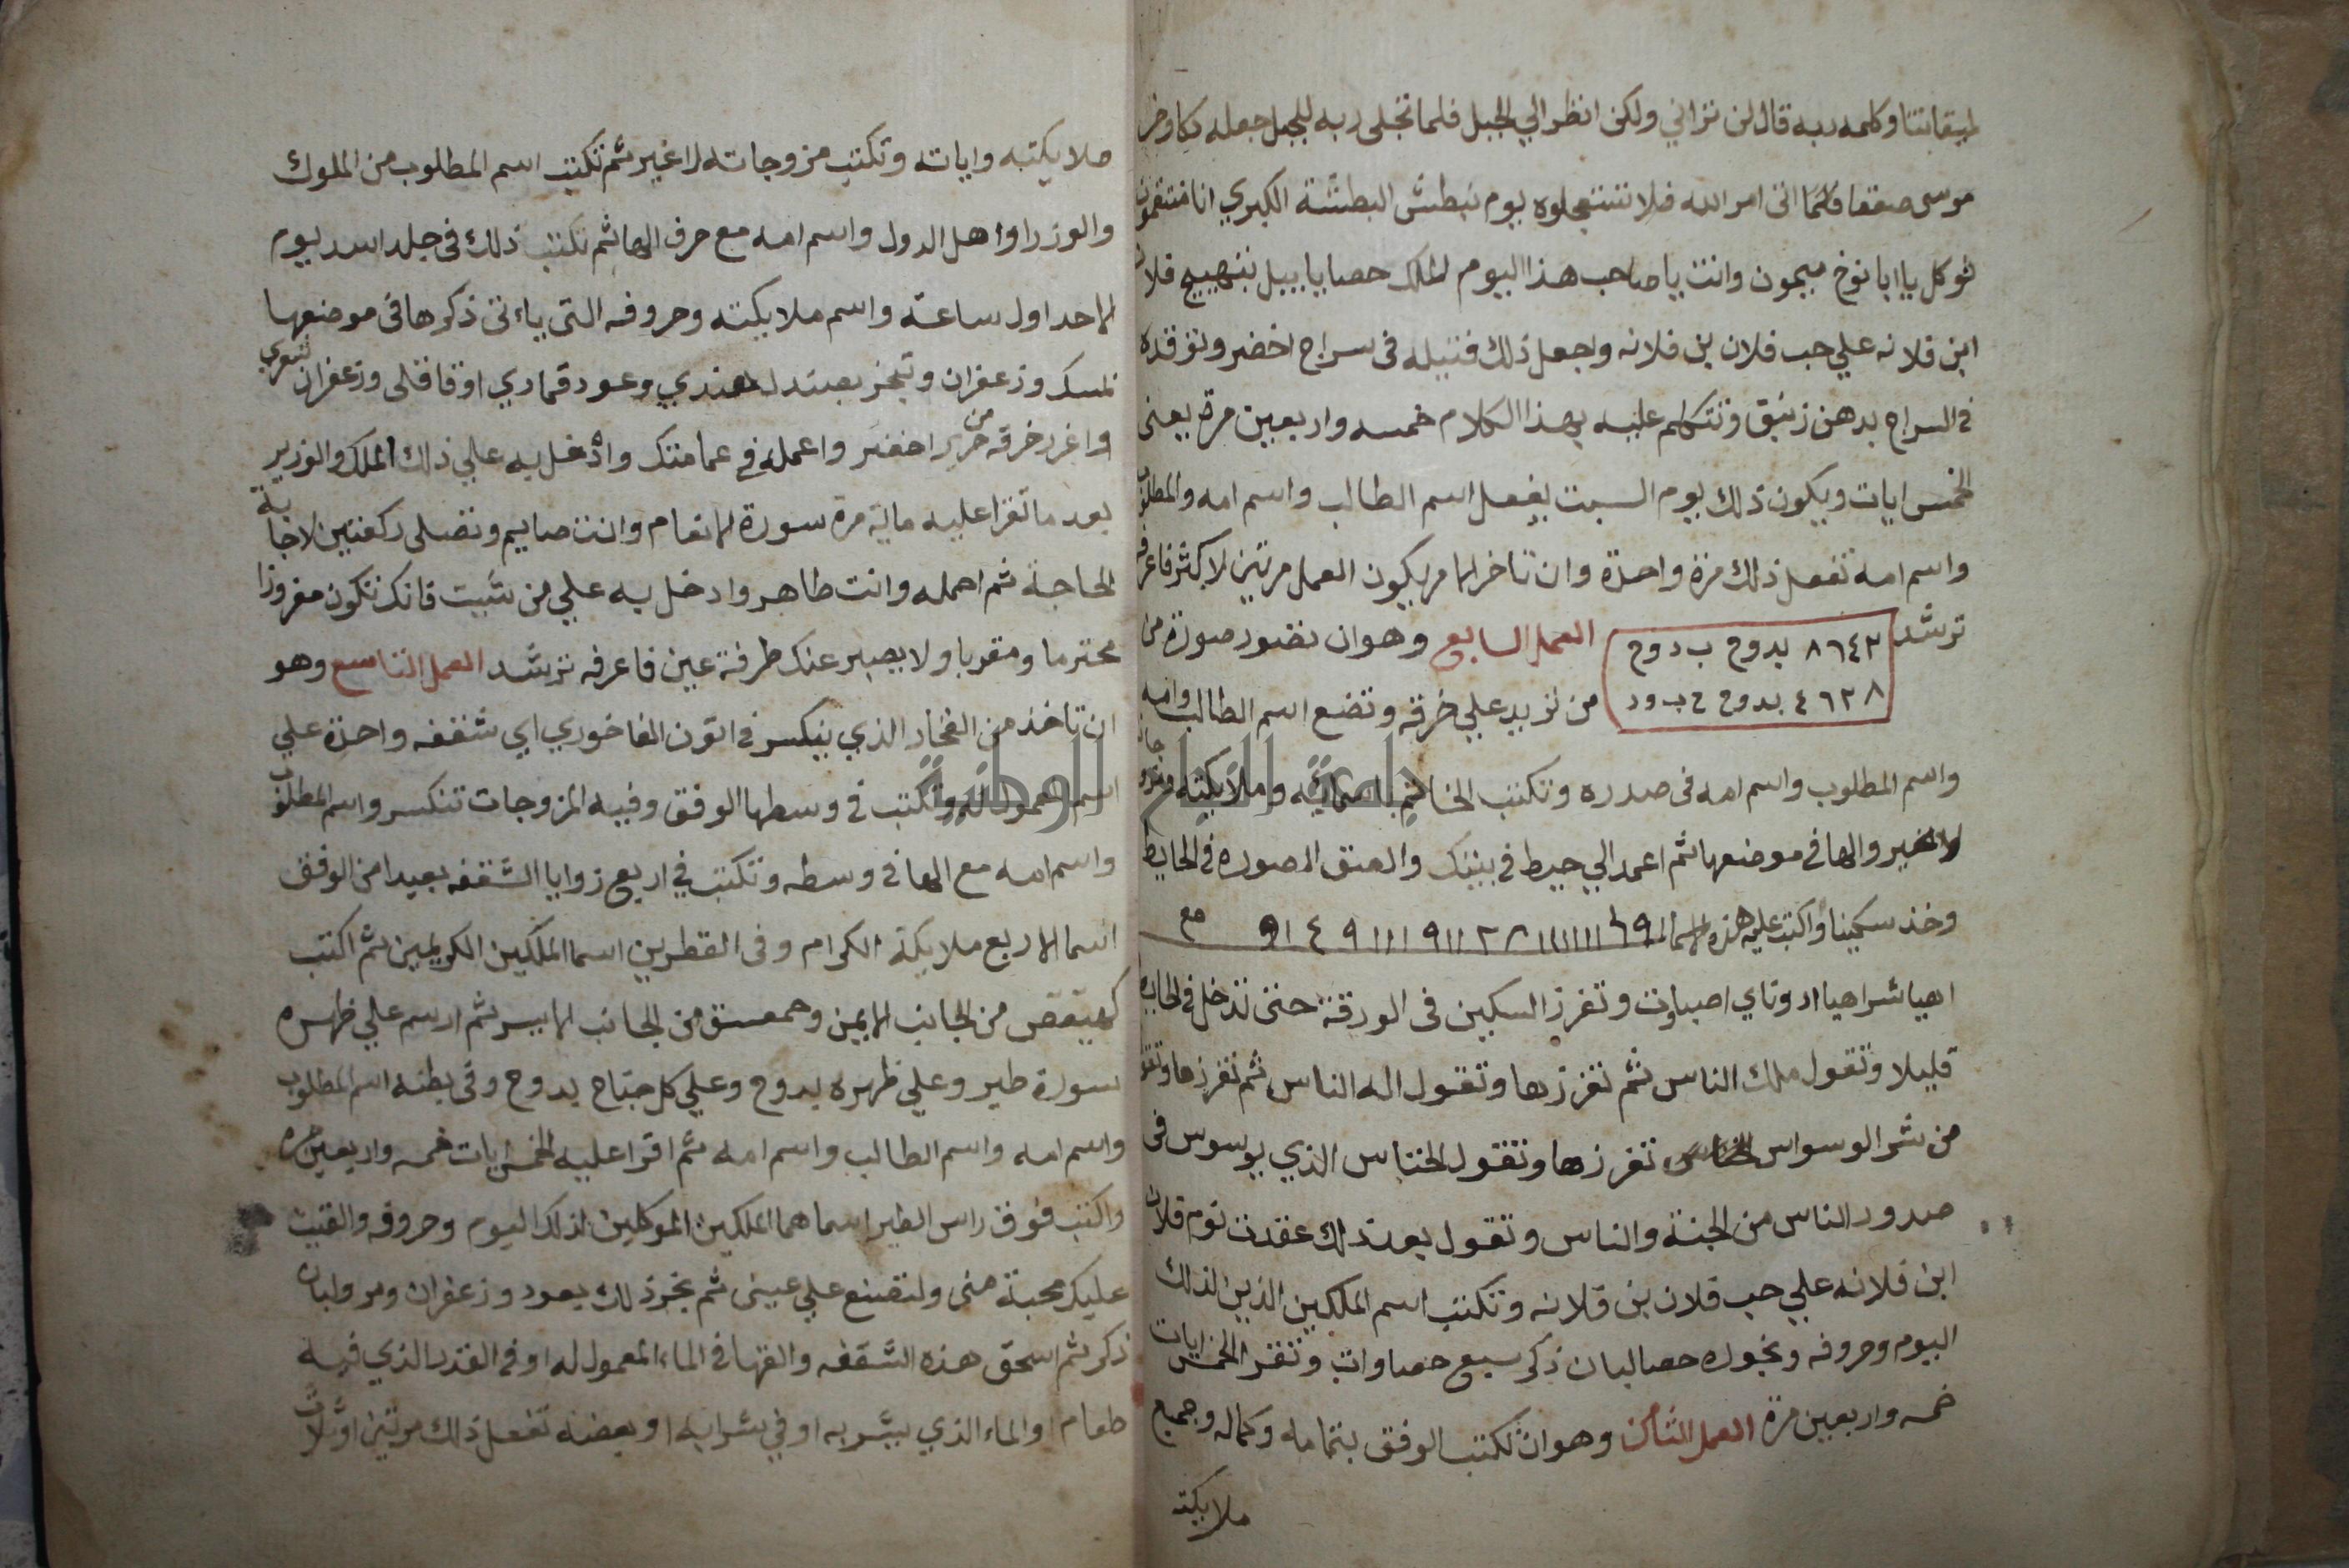 لميقاتنا وكلمه ربه قال لن تراني ولكن انظر الي الجبل فلما تجلى ربه للجبل جعله دكا وخر
موسى صعقا فلما اتى امر الله فلا تستعجلوه يوم نبطش البطشة الكبري انا منتقمون
توكل يا ابا نوخ ميمون وانت يا صاحب هذا اليوم الملك حصايابيل بتهييج فلان
ابن فلانه علي حب فلان بن فلانه واجعل ذلك فتيله فى سراج اخضر وتوقده
في السراج بدهن زنبق وتتكلم عليه بهذا الكلام خمسه واربعين مرة يعنى
الخمس ايات ويكون ذلك يوم السبت بفعل اسم الطالب واسم امه والمطلوب
واسم امه تفعل ذلك مرة واحدة وان تاخر الامر يكون العمل مرتين لا كثر فاعرفه
ترشد ٨٦٤٢ بدوح ب د و ح العمل السابع وهو ان تصور صورة من
٤٦٢٨ بدوح ح ب و د من تريد علي خرقه وتضع اسم الطالب وامه
واسم المطلوب واسم امه فى صدره وتكتب الخاتم باسمائه وملايكته
لا غير والها في موضعها ثم اعمد الي حيط في بيتك والصق الصوره في الحايط
وخذ سكينا واكتب عليه هذه الاسما ٦٩ ١١١١١١١ ٢٨ ٩١١ ٩١١١ ٤ ٩١ مع
اهيا شراهيا ادوناي اصباوت وتغرز السكين فى الورقة حتى تدخل في الحايط
قليلا وتقول ملك الناس ثم تغرزها وتقول اله الناس ثم تغرزها وتقول
من شر الوسواس تغرزها وتقول الخناس الذي يوسوس فى
صدور الناس من الجنة والناس وتقول بعد ذلك عقدت نوم فلان
ابن فلانه علي حب فلان بن فلانه وتكتب اسم الملكين الذين لذلك
اليوم وحروفه وبخوره حصا لبان ذكر سبع حصاوات وتقرا الخمس ايات
خمسه واربعين مرة العمل الثامن وهو ان تكتب الوفق بتمامه وكماله وجميع
ملايكته
ملايكته واياته وتكتب مزوجاته لا غير ثم تكتب اسم المطلوب من الملوك
والوزرا واهل الدول واسم امه مع حرف الها ثم تكتب ذلك فى جلد اسد يوم
الاحد اول ساعة واسم ملايكته وحروفه التي ياءتى ذكرها فى موضعها
بمسك وزعفران وتبخر بصندل هندي وعود قماري او قاقلى وزعفران شعري
واغرد خرقه من حرير اخضر واعمله في عمامتك وادخل به علي ذلك الملك والوزير
بعد ما تقرا عليه ماية مرة سورة الانعام وانت صايم وتصلى ركعتين لاجابة
الحاجة ثم احمله وانت طاهر وادخل به علي من شيت فانك تكون معزوزا
محترما ومقربا ولا يصبر عنك طرفة عين فاعرفه ترشد العمل التاسع وهو
ان تاخذ من الفخار الذي ينكسر في اتون الفاخوري اي شقفه واحدة علي
اسم المعمول له وتكتب في وسطها الوفق وفيه المزوجات تنكسر واسم المطلوب
واسم امه مع الها في وسطه وتكتب في اربع زوايا الشقفه بعيدا من الوفق
اسما الاربع ملايكة الكرام وفى القطرين اسما الملكين الكريمين ثم اكتب
كهيعص من الجانب الايمن وحمعسق من الجانب الايسر ثم ارسم علي ظهره
سورة طير وعلي ظهره بدوح وعلي كل جناح بدوح وفى بطنه اسم المطلوب
واسم امه واسم الطالب واسم امه ثم اقرا عليه الخمس ايات خمسه واربعين مره
واكتب فوق راس الطير اسما هما الملكين الموكلين لذلك اليوم وحروفه والقيت
عليك محبة منى ولتصنع علي عينى ثم بخر ذلك بعود وزعفران ومر ولبان
ذكر ثم اسحق هذه الشقفه والقها في الماء المعمول له او في القدر الذي فيه
طعام او الماء الذي يشربه او في شرابه او بعضه تفعل ذلك مرتين او ثلاث
جامعة النجاح الوطنية